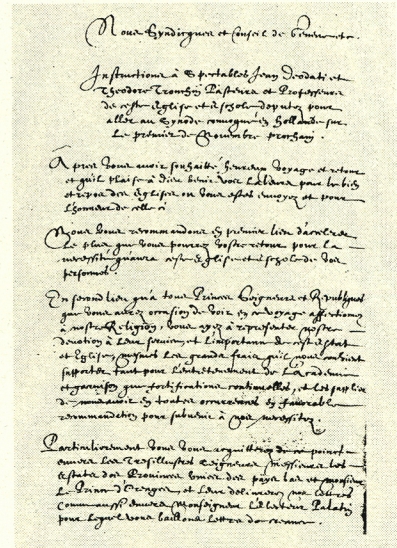 Nous Syndicques et Conseil de Geneve etc.
Instructions à Spectables Jean Deodati et
Theodore Tronchin Pasteurs et Professeurs
de ceste Eglise et Eschole deputez pour
aller au Synode convoqué en Hollande sur
Le premier de Novembre prochain.
Apres vous avoir souhaité heureux voyage et retour
et quil plaise à Dieu benir voir Labeurs pour le bien
et repos des Eglises ou vous estes envoyez et pour
Lhonneur de celle ci
Nous vous recommandons en premier lieu d'accelerer
Le plus que vous pourrez vostre retour pour la
necessité quaura ceste Eglise et Eschole de vos
personnes.
En second lieu qu'à tous Princes Seigneurs et Republiques
que vous aurez occasion de voir en ce voyage affectionez
à nostre Religion, vous ayez à representer nostre
devotion à Leur service, et Limportance de cest Estat
et Eglise, mesmes Les grands frais quil nous convient
supporter, tant pour Lentretenement de L'Academie
et garnison que fortifications continuelles, et les supplier
de nous avoir en toutes occurrences en favorable
recommandation pour subvenir à nos necessitez.
Particulierement vous vous acquitterez de ce poinct
envers Les Tresillustres Seigneurs Messieurs les
Estats des Provinces unies des pays bas et monsieur
Le Prince d'Orenges, et Leur delivrerez nos lettres
Comme aussi envers Monseigneur L'électeur Palatin
pour Lequel vous baillons Lettre de creance.